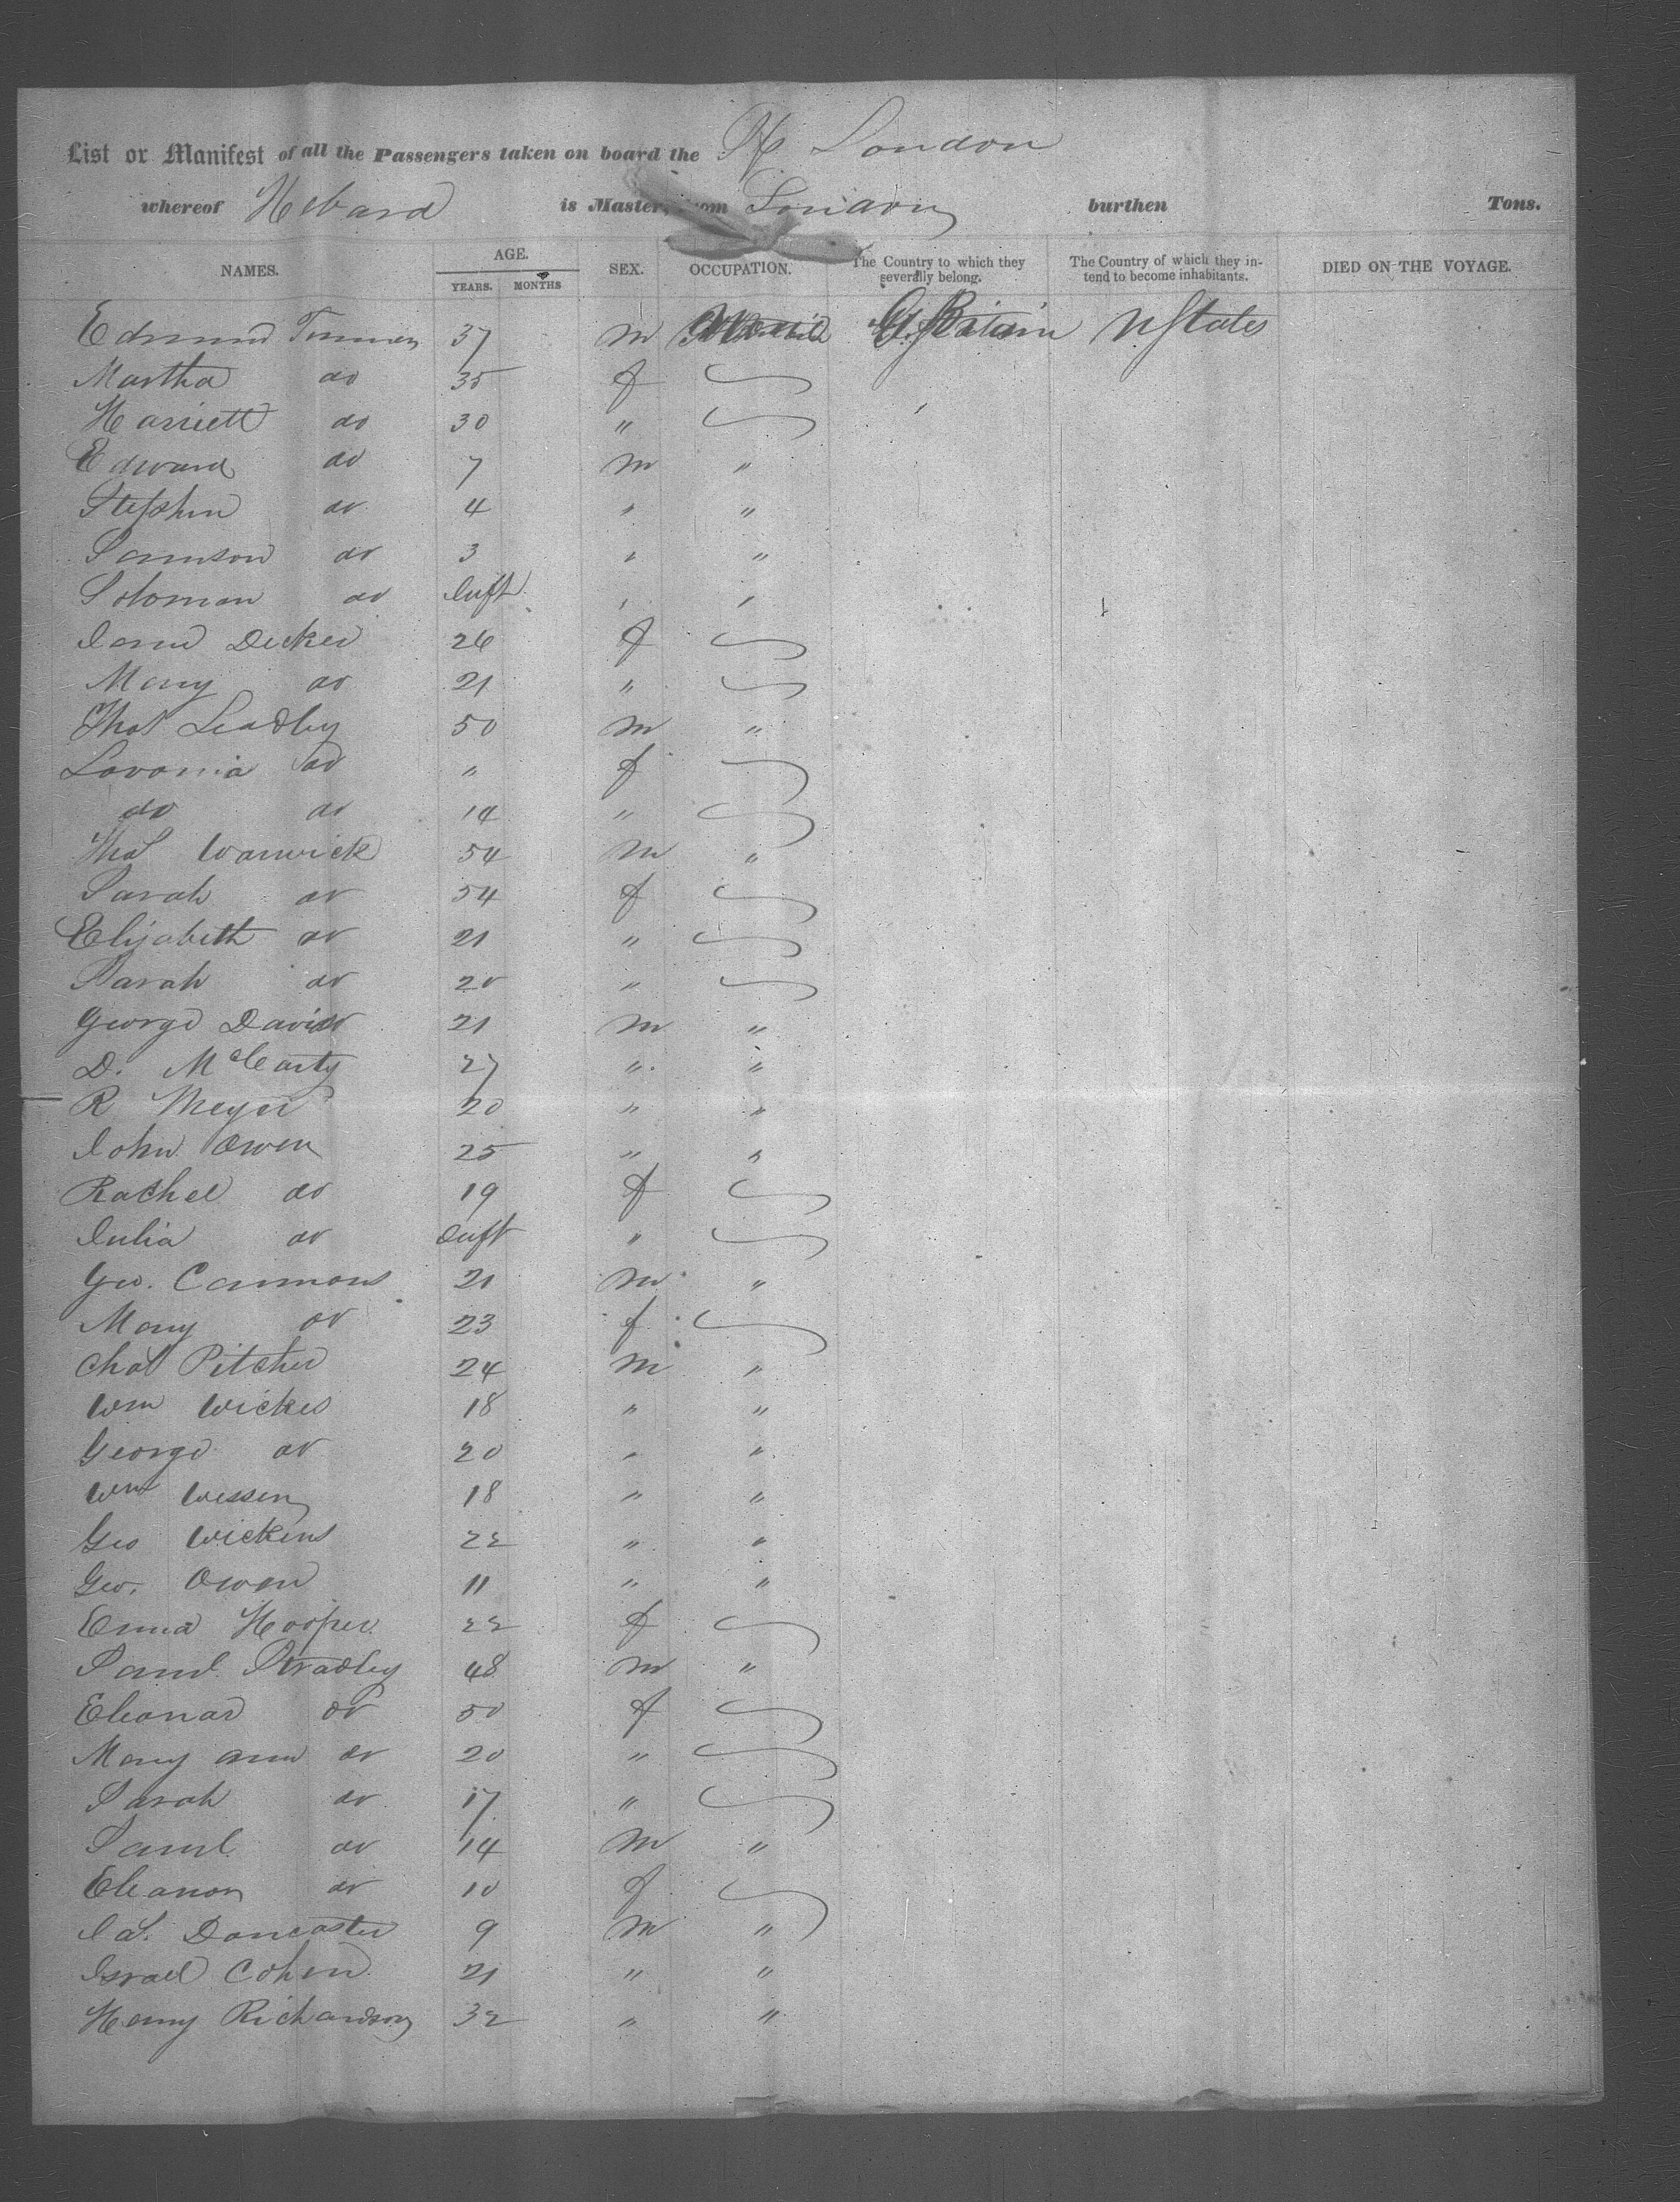 List or Manifest of all the Passengers taken on board the London
whereof Hebard is Master, from London burthen Tons.
NAMES. AGE. YEARS. MONTHS SEX. OCCUPATION. The Country to which they severally belong. The Country of which they intend to become inhabitants. DIED ON THE VOYAGE.
Edmund 37 m G. Britain U States
Martha do 35 f
Harriett do 30 "
Edward do 7 m "
Stephen do 4 " "
Samson do 3 " "
Solomon do Inft " "
Jane Decker 26 f
Mary do 21 "
Thos Leadley 50 m "
Lavonia do " f
do do 14 "
Thos Warwick 54 m "
Sarah do 54 f
Elizabeth do 21 "
Sarah do 20 "
George David 21 m "
D. McCarty 27 " "
R Meyer 20 " "
John Owen 25 " "
Rachel do 19 f
Julia do Inft "
Geo. Cammons 21 m "
Mary do 23 f
Chas Pitcher 24 m "
Wm Wickes 18 " "
George do 20 " "
Wm Wessen 18 " "
Geo Wickens 22 " "
Geo. Owen 11 " "
Emma Hooper 22 f
Saml. Stradley 48 m "
Eleanor do 50 f
Mary Ann do 20 "
Sarah do 17 "
Saml. do 14 m "
Eleanor do 10 f
Jas. Doncaster 9 m "
Israel Cohen 21 " "
Henry Richardson 32 " "